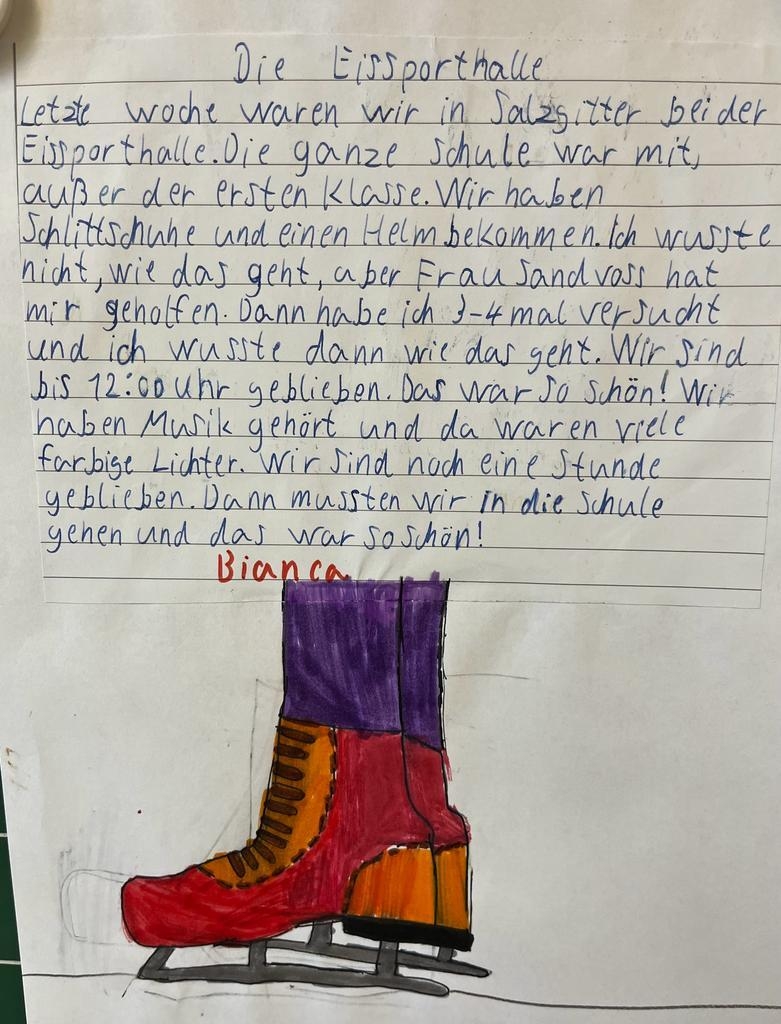 Die Eissporthalle
Letzte woche waren wir in Salzgitter bei der
Eissporthalle. Die ganze schule war mit,
außer der ersten Klasse. Wir haben
Schlittschuhe und einen Helm bekommen. Ich wusste
nicht, wie das geht, aber Frau Sandvoss hat
mir geholfen. Dann habe ich 3-4 mal versucht
und ich wusste dann wie das geht. Wir sind
bis 12:00 uhr geblieben. Das war so schön! Wir
haben Musik gehört und da waren viele
farbige Lichter. Wir sind noch eine Stunde
geblieben. Dann mussten wir in die schule
gehen und das war so schön!
Bianca